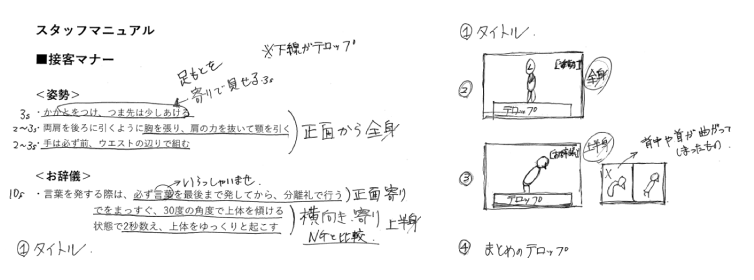 スタッフマニュアル
※下線がテロップ
■接客マナー
足もとを
寄りで見せる.3s
<姿勢>
3s ・かかとをつけ、つま先は少しあける
2~3s ・両肩を後ろに引くように胸を張り、肩の力を抜いて顎を引く
正面から全身
2~3s ・手は必ず前、ウエストの辺りで組む
いらっしゃいませ.
<お辞儀>
10s ・言葉を発する際は、必ず言葉を最後まで発してから、分離礼で行う
正面寄り
でをまっすぐ、30度の角度で上体を傾ける
状態で2秒数え、上体をゆっくりと起こす
横向き.寄り 上半身
NGと比較.
①タイトル.
①タイトル.
②
全身
テロップ
③
上半身
テロップ
背中や首が曲がって
しまったもの.
×
④ まとめのテロップ